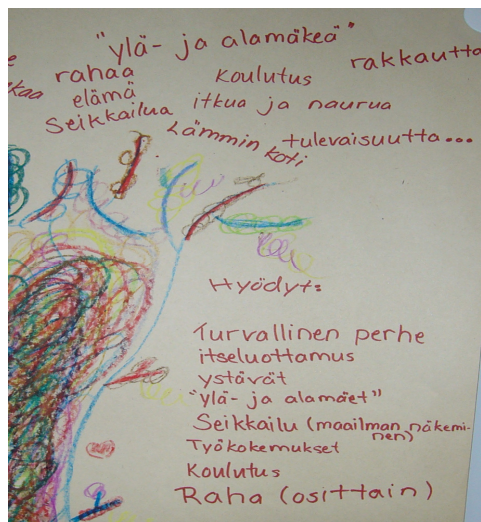 "ylä- ja alamäkeä"
rakkautta
rahaa
koulutus
elämä
itkua ja naurua
Seikkailua
Lämmin koti
tulevaisuutta...
Hyödyt:
Turvallinen perhe
itseluottamus
ystävät
"ylä- ja alamäet"
Seikkailu (maailman näkemi-
nen)
Työkokemukset
Koulutus
Raha (osittain)